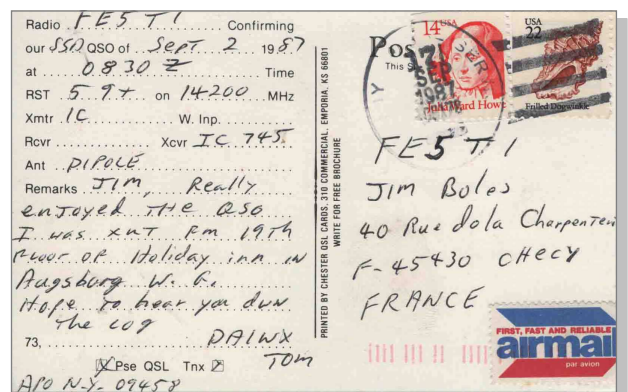 Radio FE5T1 Confirming
our SSB QSO of Sept 2 1987
at 0830 Z Time
RST 5 9+ on 14200 MHz
Xmtr IC W. Inp.
Rcvr Xcvr IC 745
Ant DIPOLE
Remarks JIM, Really
enJoyed THE QSO
I was XMT Fm 19th
Floor OF Holiday inn IN
Augsburg W. G.
Hope To hear you dwn
The log
73, DA1WX
TOM
Pse QSL Tnx
APO N.Y. 09458
PRINTED BY CHESTER QSL CARDS, 310 COMMERCIAL, EMPORIA, KS 66801
WRITE FOR FREE BROCHURE
Pos
This S
14 USA
Julia Ward Howe
USA
22
Frilled Dogwinkle
SEP
1987
FE5T1
JIM Boles
40 Rue dola Charpenteri
F-45430 CHECY
FRANCE
FIRST, FAST AND RELIABLE
airmail
par avion